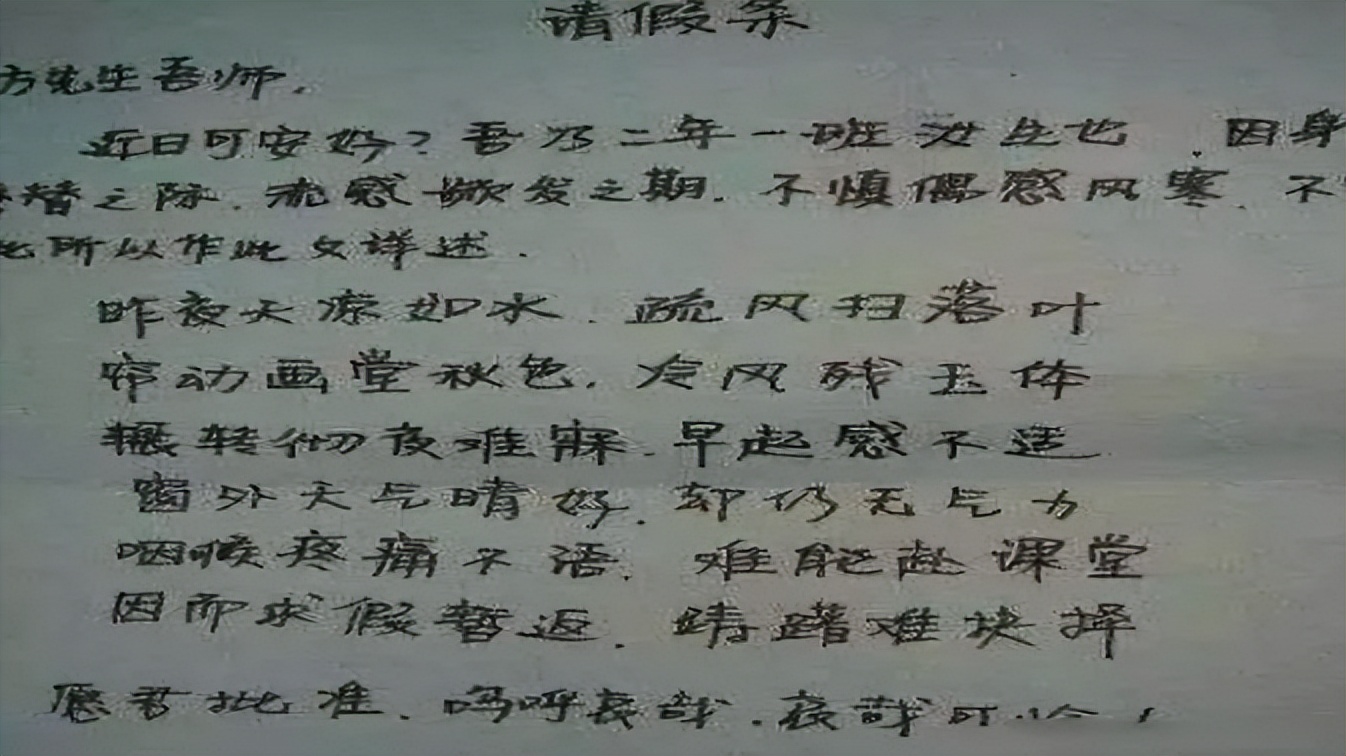 请假条
方先生吾师，
近日可安好？吾乃二年一班学生也，因身
替之际，流感频发之期，不慎偶感风寒，不
此所以作此文详述．
昨夜天凉如水，疏风扫落叶
帘动画堂秋色，冷风残玉体
辗转彻夜难寐，早起感不适
窗外天气晴好，却仍无气力
咽喉疼痛不语，难能赴课堂
因而求假暂返，踌躇难抉择
愿君批准，呜呼哀哉，哀哉